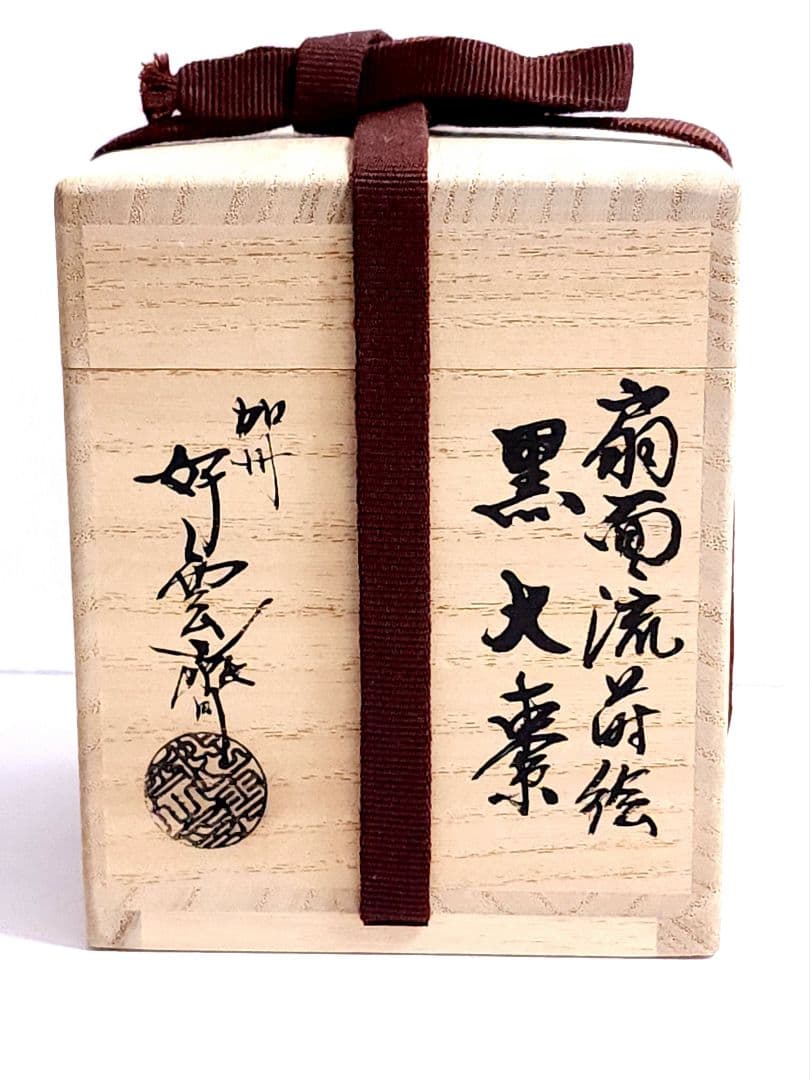 扇面流蒔絵
黒大棗
加州
好雲齋